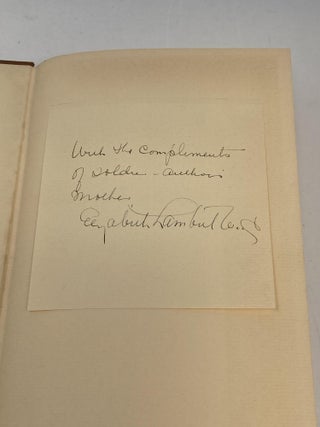 With the Complements
of Soldier - author's
Mother
Elizabeth Lambert